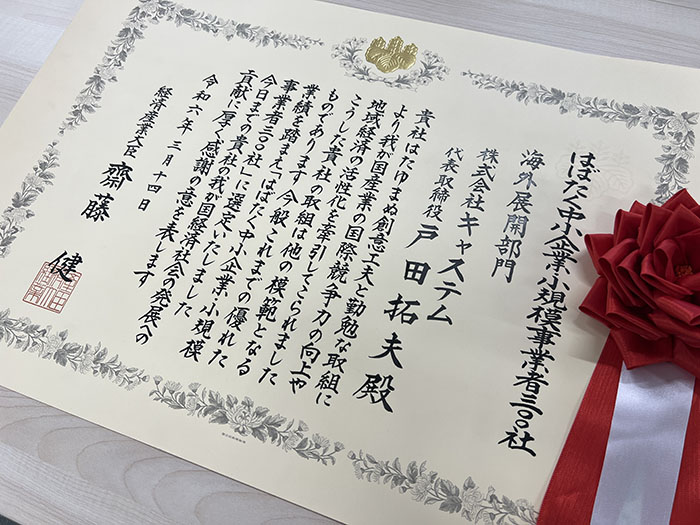 はばたく中小企業・小規模事業者三〇〇社
海外展開部門
株式会社キャステム
代表取締役 戸田拓夫殿
貴社はたゆまぬ創意工夫と勤勉な取組に
より我が国産業の国際競争力の向上や
地域経済の活性化を牽引してこられました
こうした貴社の取組は他の模範となる
ものであります 今般 これまでの優れた
業績を踏まえ「はばたく中小企業・小規模
事業者三〇〇社」に選定いたしました
今日までの貴社の我が国経済社会の発展への
貢献に厚く感謝の意を表します
令和六年三月十四日
経済産業大臣 齋藤 健